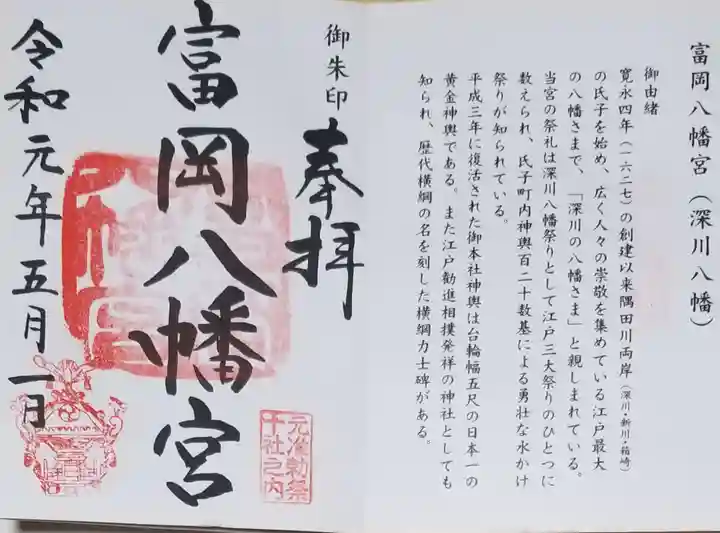 富岡八幡宮(深川八幡)
御由緒
寛永四年(一六二七)の創建以来隅田川両岸(深川・新川・箱崎)
の氏子を始め、広く人々の崇敬を集めている江戸最大
の八幡さまで、「深川の八幡さま」と親しまれている。
当宮の祭礼は深川八幡祭りとして江戸三大祭りのひとつに
数えられ、氏子町内神輿百二十数基による勇壮な水かけ
祭りが知られている。
平成三年に復活された御本社神輿は台輪幅五尺の日本一の
黄金神輿である。また江戸勧進相撲発祥の神社としても
知られ、歴代横綱の名を刻した横綱力士碑がある。
御朱印
奉拝
富岡八幡宮
元准勅祭
十社之内
令和元年五月一日